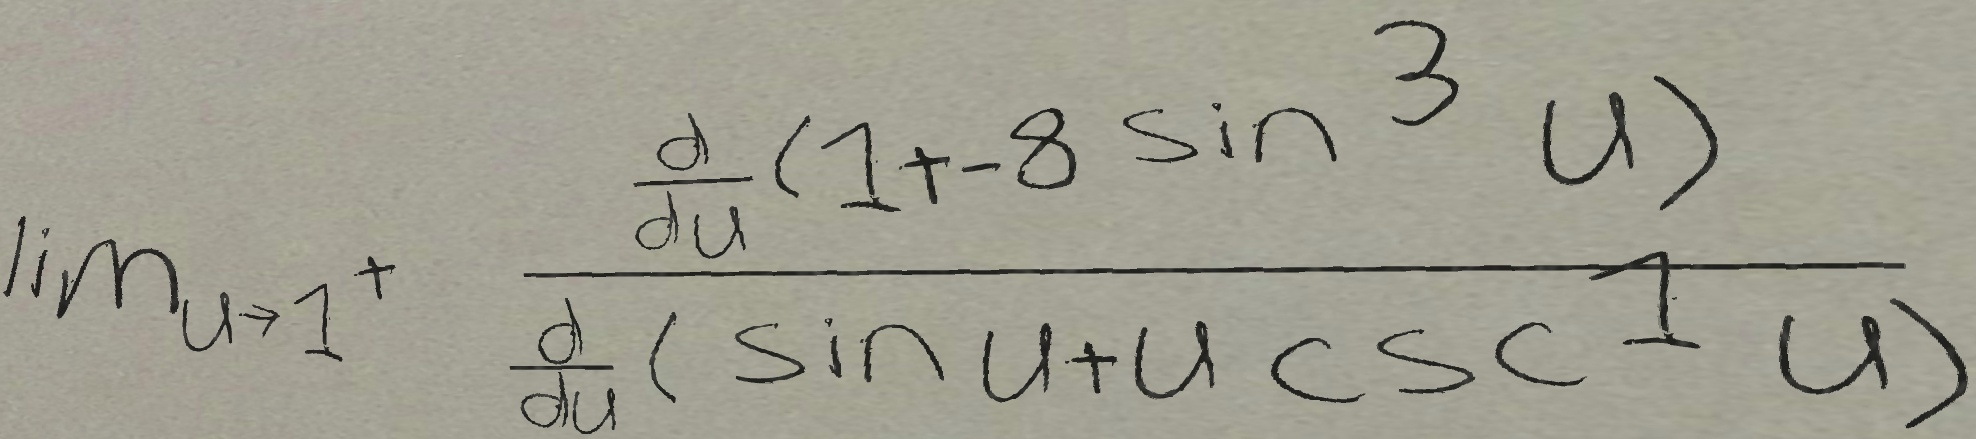 $\lim_{u \to 1^+} \frac{\frac{d}{du}(1+-8\sin^3 u)}{\frac{d}{du}(\sin u+u\csc^1 u)}$